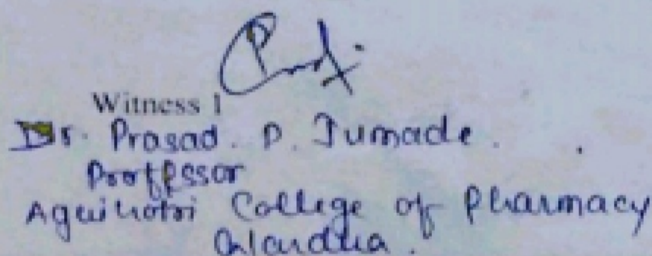 Witness 1
Dr. Prasad. P. Jumade.
Proffessor
Agnihotri College of Pharmacy
Wardha.